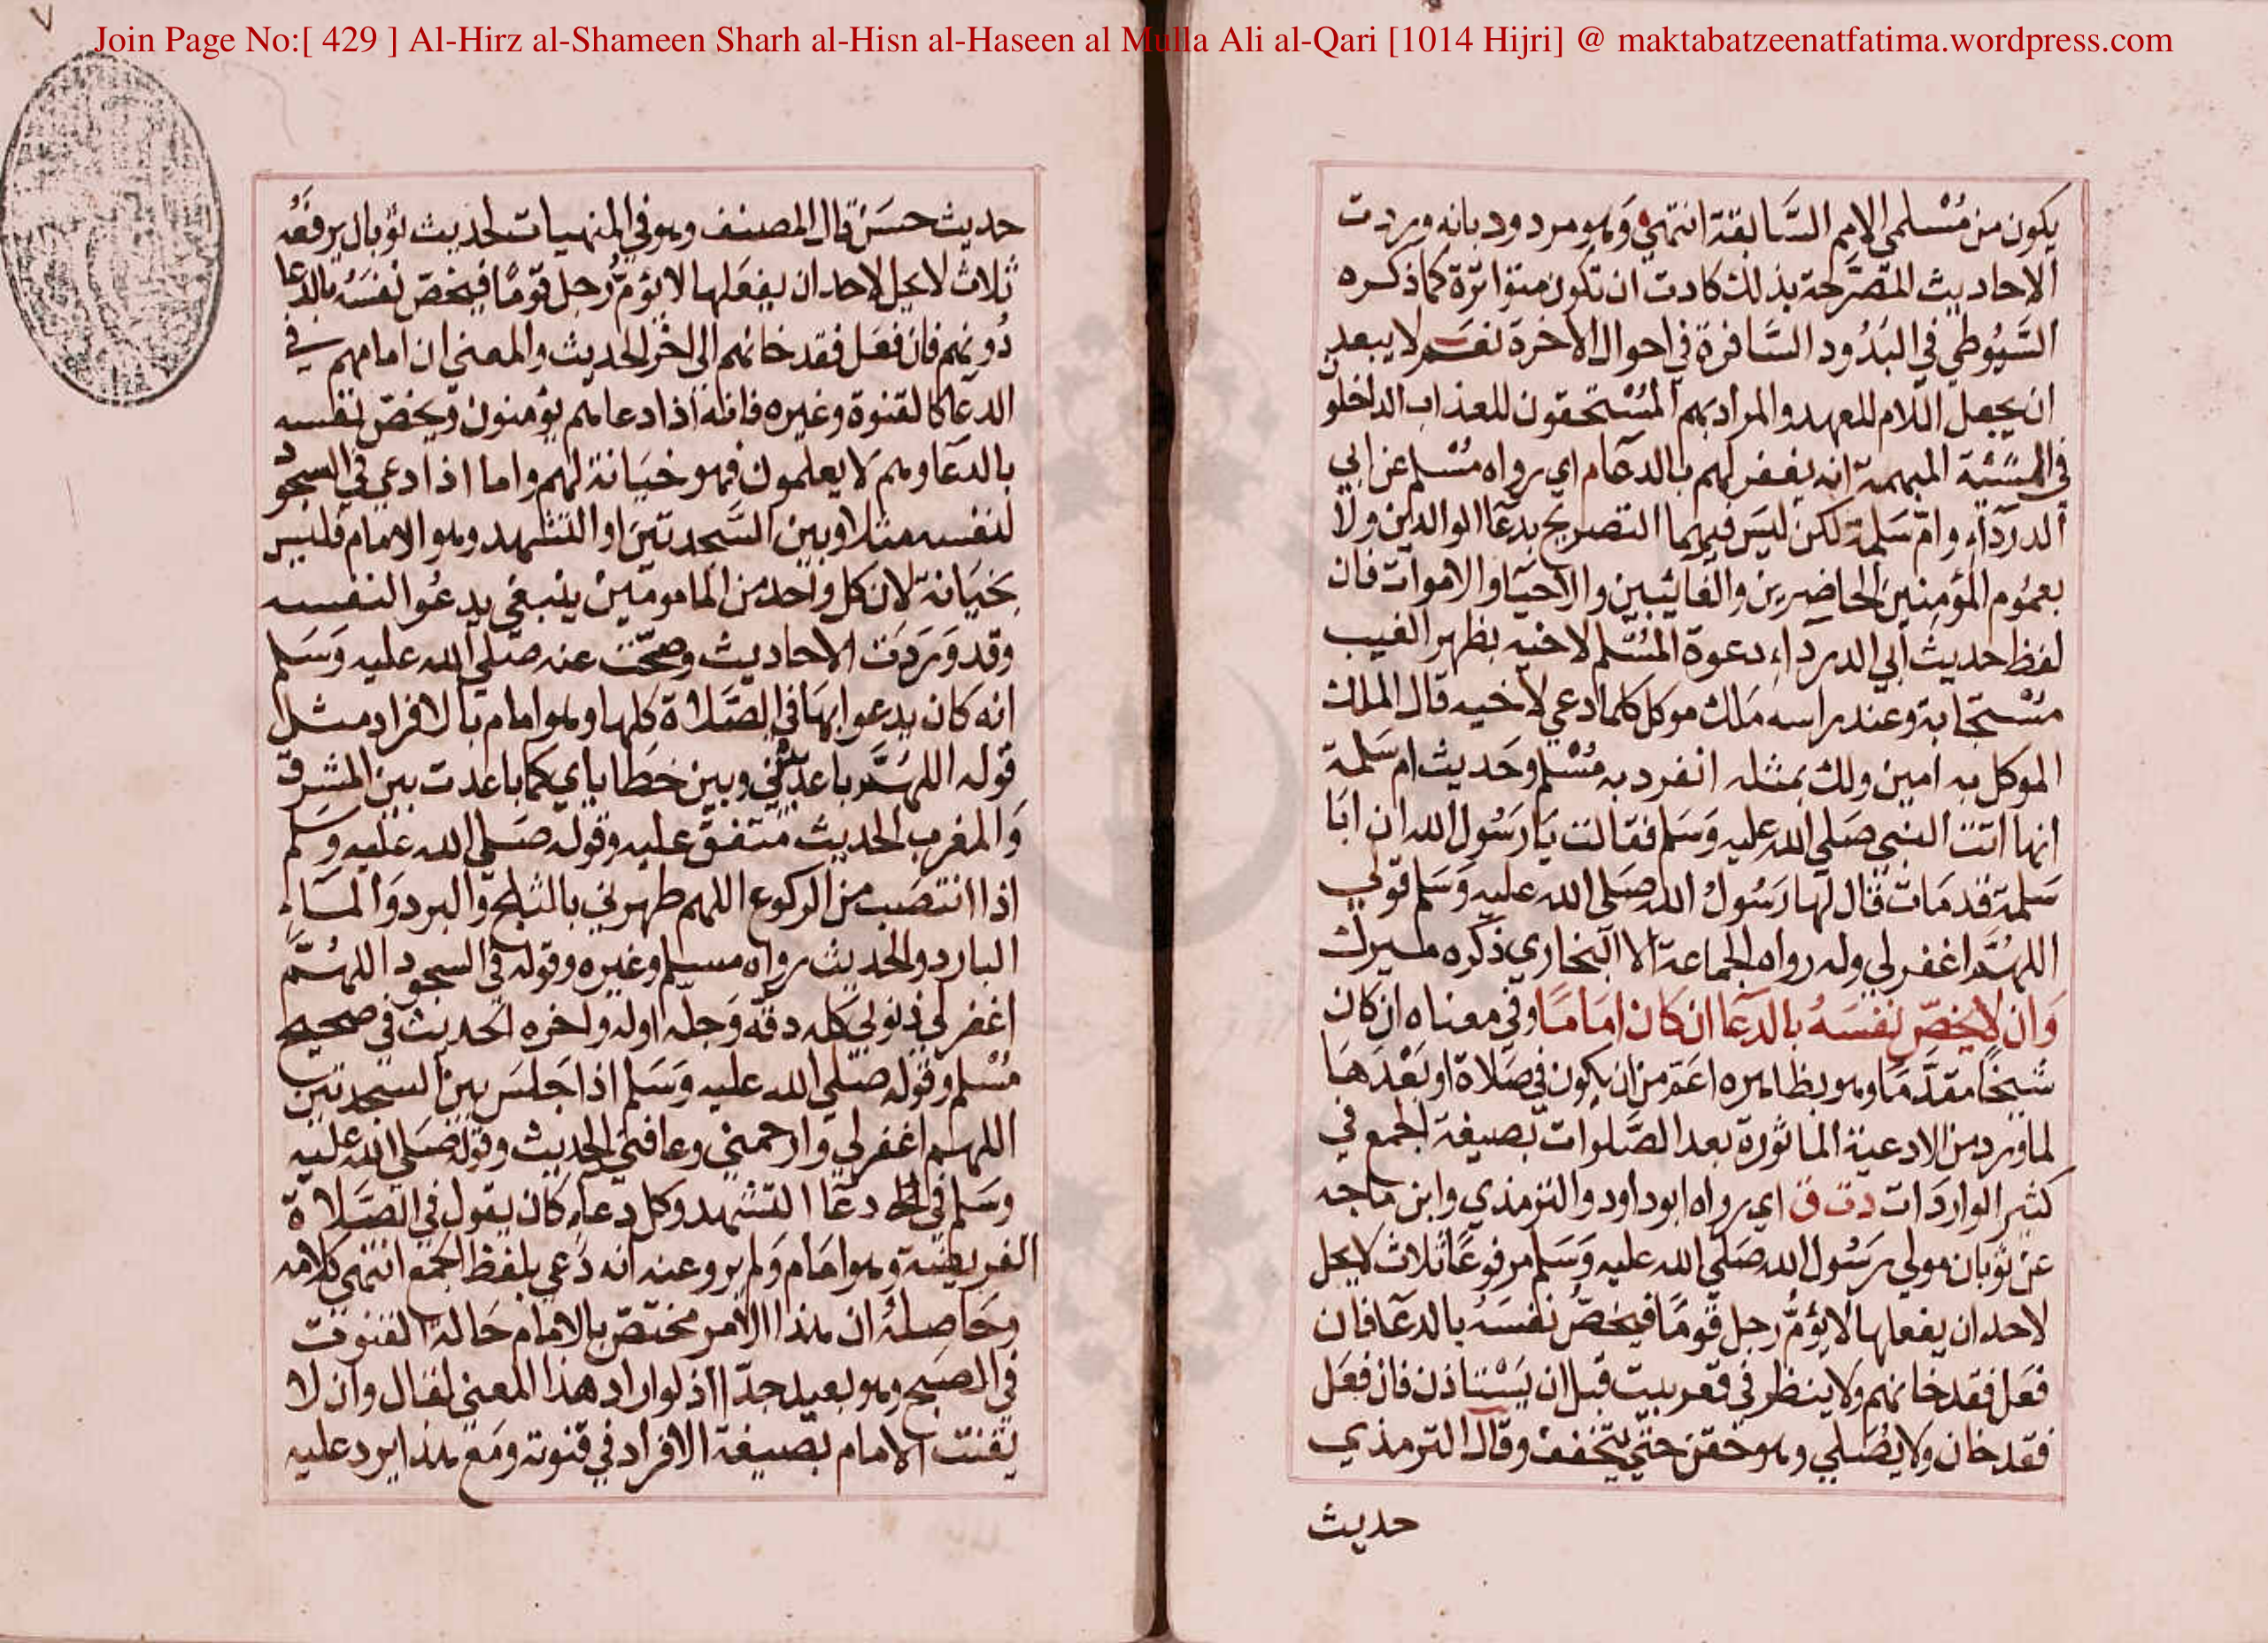 Join Page No:[ 429 ] Al-Hirz al-Shameen Sharh al-Hisn al-Haseen al Mulla Ali al-Qari [1014 Hijri] @ maktabatzeenatfatima.wordpress.com
يكون من مُسْلمي الامم السَّابقة انتهي وَهو مردود بانه وردت
الاحاديث المتصَرّحة بذلك كادت ان تكون متواترة كما ذكره
السَّيُوطي في البَدُود السَّافرة في احوال الاخرة نعَم لا يبعد
ان يجعل اللام للعهد والمراد بهم المُسْتحقون للعذاب الداخلون
في المشيّئة المبهمة انه يغفر لهم بالدعَا م اي رواه مُسْلم عن ابي
الدرداء وامّ سَلمة لكن ليسَ فيهما التصريح بدعَا الوالدين ولا
بعمُوم المؤمِنين الحاضِرين والغائِبين والاحيَا والاموات فان
لفظ حديث ابي الدرداء دعوة المُسْلم لاخيه بظهر الغيب
مُسْتجَابة وعند راسه مَلك موكل كلما دعي لاخيه قال الملك
الموكل به امين ولك بمثله انفرد به مُسْلم وحَديث ام سَلمة
انها اتت النبي صَلي الله عليه وَسَلم فقالت يَا رَسُول الله ان ابَا
سَلمة قد مَات قال لها رَسُول الله صَلي الله عليه وَسَلم قولي
اللهُمَّ اغفر لي وله رواه الجماعة الا البخاري ذكره ميرك
وَان لا يخصّ نفسَهُ بالدعَا ان كَان امَامًا وفي معناه ان كان
شيخًا مقدَّمًا وهو بظاهره اعَمّ من ان يكون في صَلاة او بَعْدَهَا
لما ورد من الادعية الماثورة بعد الصَّلوات بصيغة الجمع في
كثير الواردَات دت ق اي رواه ابو داود والترمذي وابن ماجه
عن ثوبان مولي رسُول الله صَلي الله عليه وَسَلم مرفوعًا ثلاث لا يحل
لاحد ان يفعلها لا يؤمُّ رجل قومًا فيخصّ نفسَهُ بالدعَا فان
فعَل فقد خانهم ولا ينظر في قعر بيت قبل ان يَسْتاذن فان فعَل
فقد خان ولا يُصَلي وهو حَقن حتي يتخفف وقال الترمذي
حديث
حديث حسَن قال المصنف وهو في المنهيات لحديث ثوبان يرفعُه
ثلاث لا يحل لاحد ان يفعَلها لا يؤمّ رُجل قومًا فيخصّ نفسَهُ بالدعا
دُونهم فان فعَل فقد خانهم الي اخر الحديث والمعني ان امامهم في
الدعَا كالقنوة وغيره فانه اذا دعا هم يؤمنون ويخصّ نفسه
بالدعَا وهم لا يعلمون فهو خيَانة لهم واما اذا دعي في السجود
لنفسه مثلا وبين السَّجدتين او التشهد وهو الامام فليس
بخيَانة لان كل واحد من المامومين ينبغي يدعُوا لنفسه
وقد وَرَدَت الاحاديث وصحّت عنه صَلي الله عليه وَسَلم
انه كان يدعوا بهَا في الصَّلاة كلها وهو امام بالافراد مثل
قوله اللهُمَّ باعد بيني وبين خطاياي كما باعدت بين المشرق
وَالمغرب الحديث متفق عليه وقوله صَلي الله عليه وَسَلم
اذا انتصَب من الركوع اللهم طهرني بالثلج وَالبرد وَالمَاءِ
البارد والحديث رواه مسلم وغيره وقوله في السجود اللهُمَّ
اغفر لي ذنوبي كله دقه وَجله اوله واخره الحديث في صحيح
مُسْلم وقوله صَلي الله عليه وَسَلم اذا جَلسَ بين السجدتين
اللهم اغفر لي وارحمني وعافني الحديث وقوله صَلي الله عليه
وسَلم في دعَا التشهد وكل دعاء كان يقول في الصَّلاة
الفريضة وهو امَام وَلم يرو عنه انه دَعي بلفظ الجمع انتهي كلامه
وحَاصِلهُ ان هذا الامر مختصّ بالامام حَالة القنوت
في الصبح وهو بعيد جدّا اذ لو اراد هذا المعني لقال وان لا
يقنت الامام بصيغة الافراد في قنوته ومع هذا يرد عليه